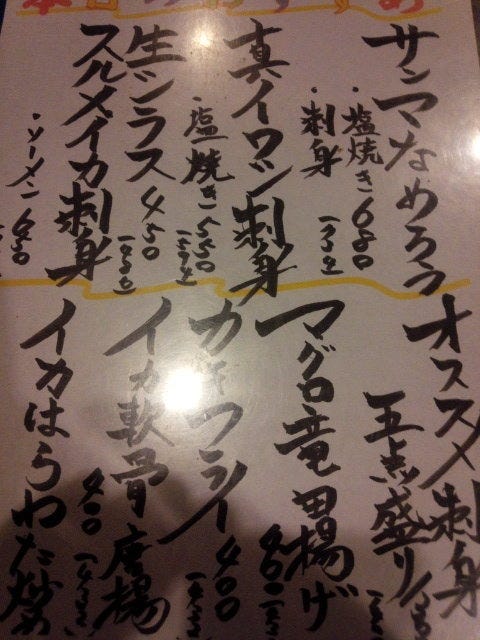 本日のおすすめ
サンマなめろう
・塩焼き 680
・刺身
真イワシ刺身
・塩焼き 550
生シラス 450
スルメイカ刺身
・ソーメン 680
オススメ刺身
五点盛り
マグロ竜田揚げ
カキフライ 400
イカ軟骨唐揚
400
イカはらわた炒め